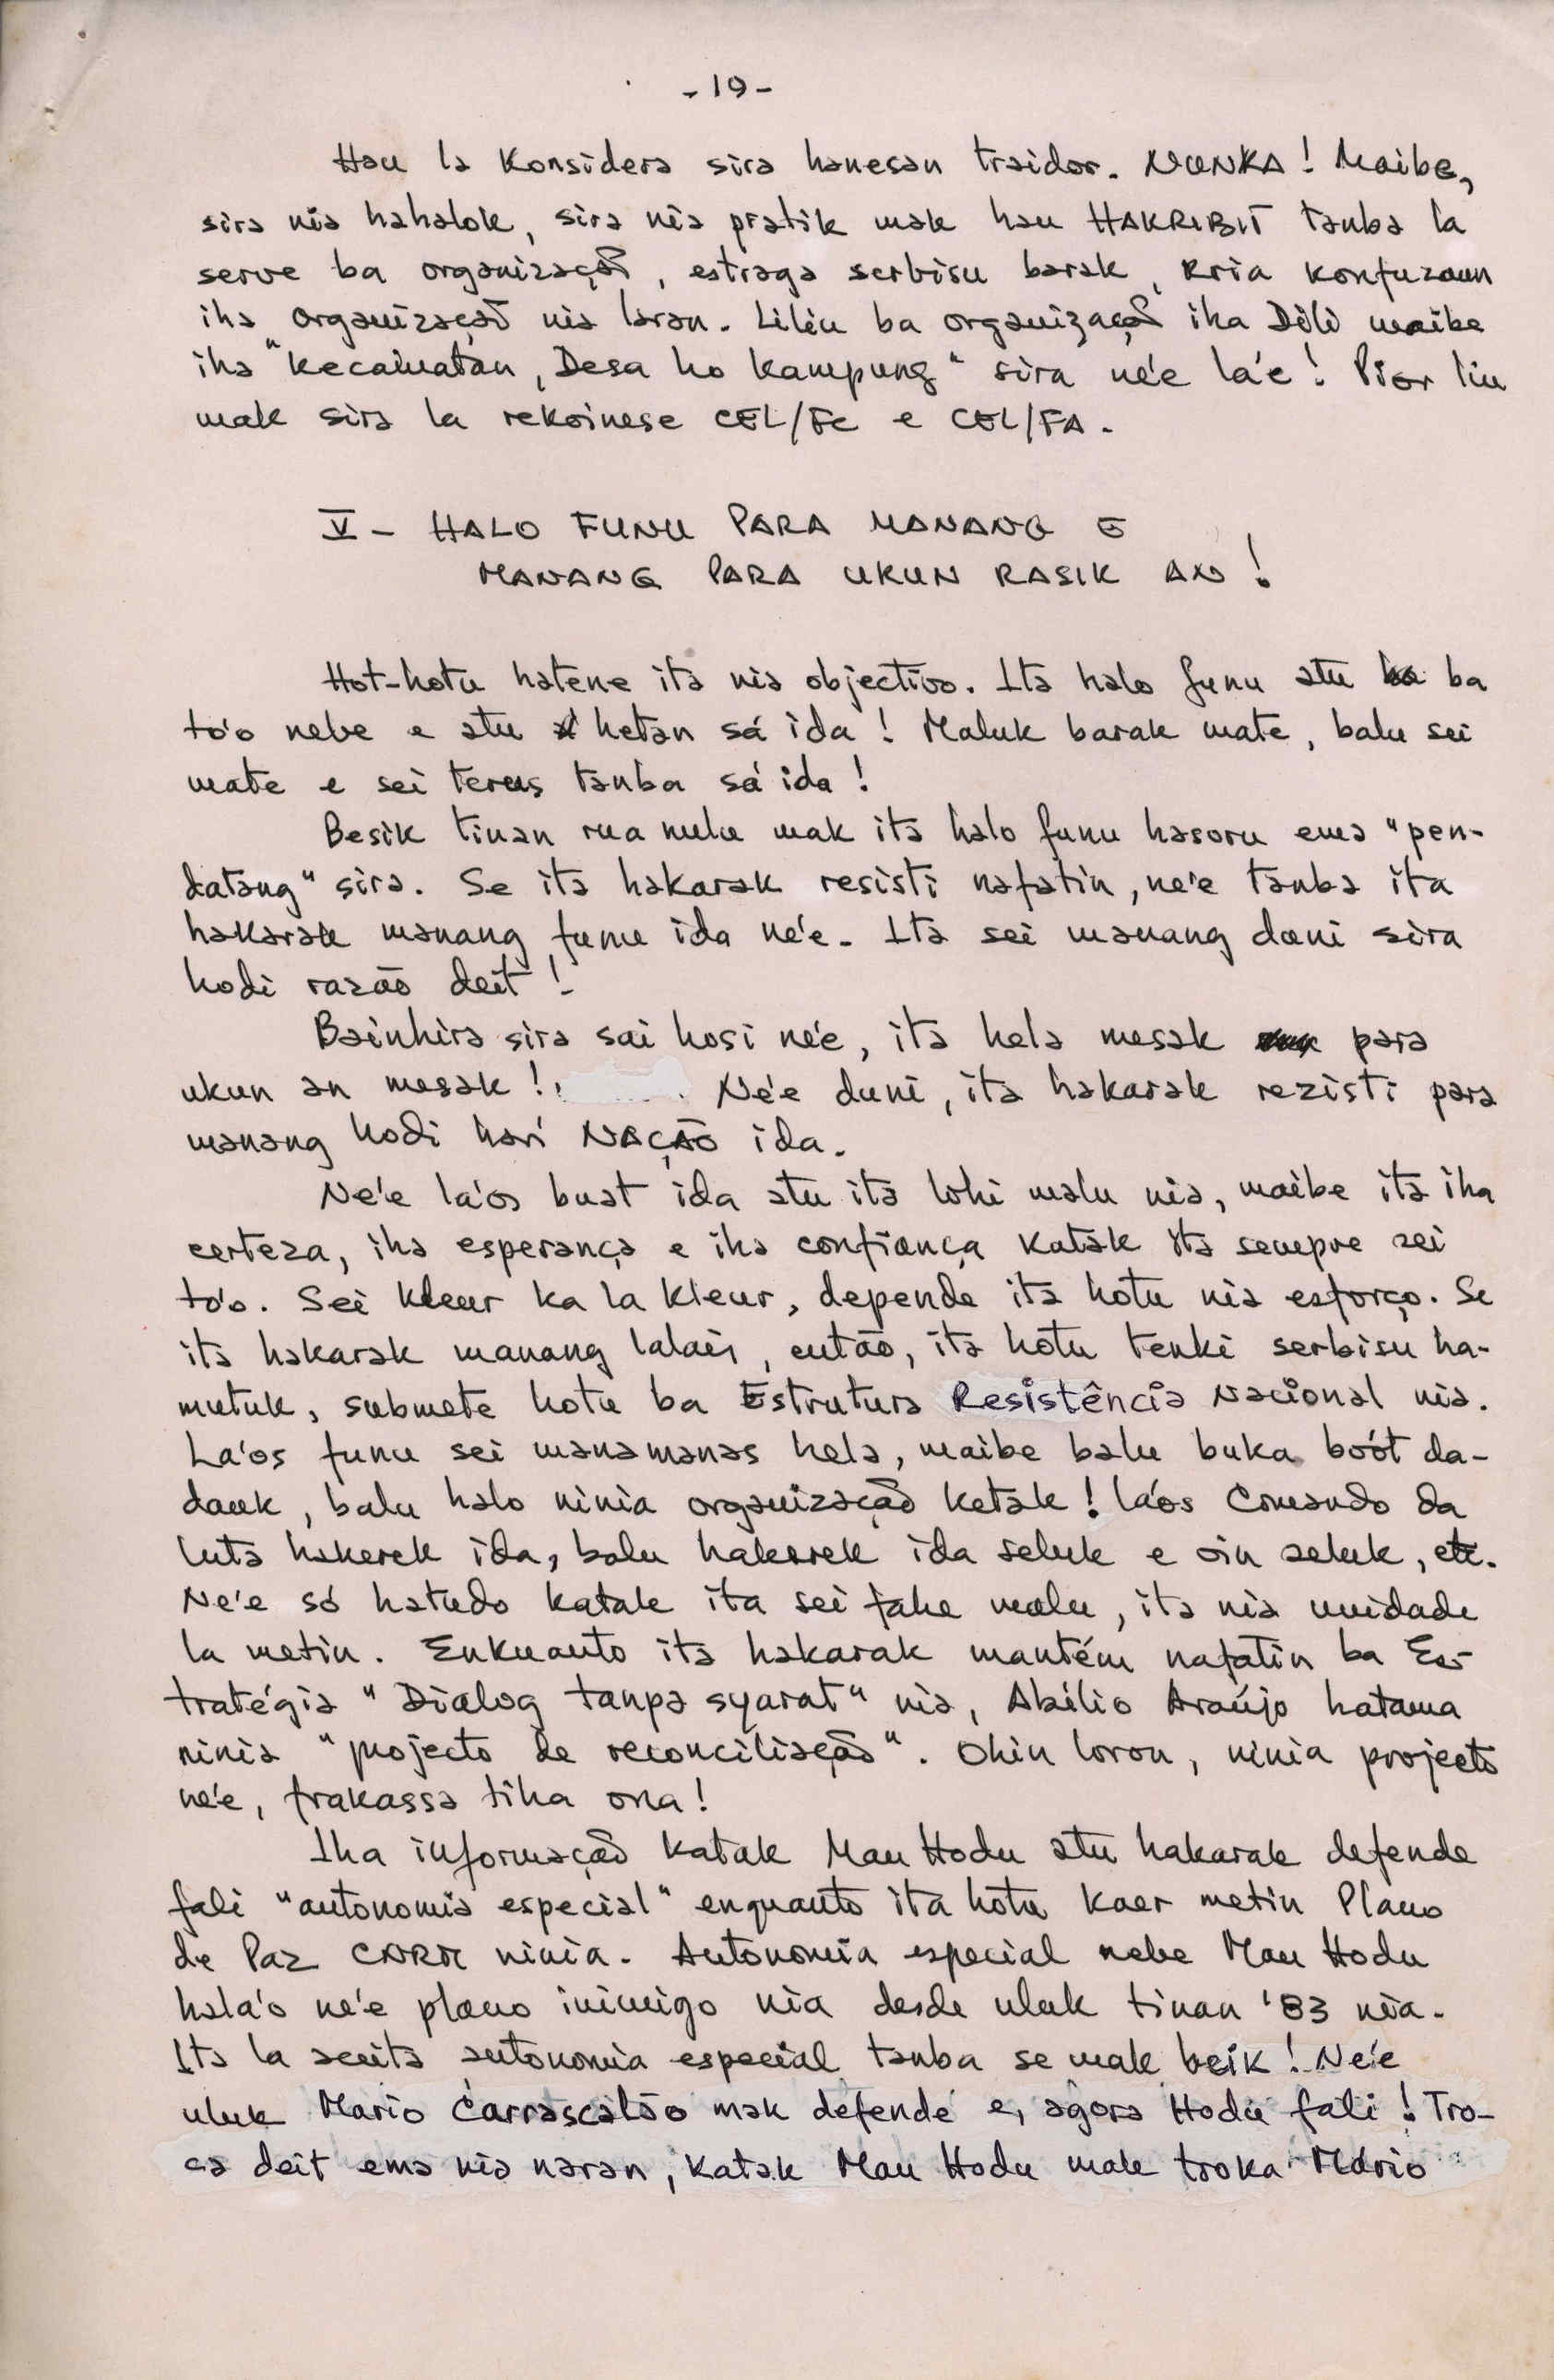 - 19 -
Hau la Konsidera sira hanesan traidor. NUNKA! Maibe,
sira nia hahalok, sira nia pratik mak hau HAKRIBIT tanba la
serve ba organização, estraga serbisu barak, kria konfuzaun
iha organização nia laran. Liliu ba organização iha Dili maibe
iha "kecamatan, Desa ho kampung" sira ne'e la'e! Pior liu
mak sira la rekoinese CEL/FC e CEL/FA.
V - HALO FUNU PARA MANANG E
MANANG PARA UKUN RASIK AN!
Hot-hotu hatene ita nia objectivo. Ita halo funu atu ba
to'o nebe e atu hetan sá ida! Maluk barak mate, balu sei
mate e sei terus tanba sá ida!
Besik tinan rua nulu mak ita halo funu hasoru ema "pen-
datang" sira. Se ita hakarak resisti nafatin, ne'e tanba ita
hakarak manang funu ida ne'e. Ita sei manang duni sira
hodi razão deit!
Bainhira sira sai hosi ne'e, ita hela mesak para
ukun an mesak! Ne'e duni, ita hakarak rezisti para
manang hodi hari NAÇÃO ida.
Ne'e la'os buat ida atu ita lohi malu nia, maibe ita iha
certeza, iha esperança e iha confiança katak ita sempre sei
to'o. Sei kleur ka la kleur, depende ita hotu nia esforço. Se
ita hakarak manang lalais, então, ita hotu tenki serbisu ha-
mutuk, submete hotu ba Estrutura Resistência Nacional nia.
La'os funu sei manamanas hela, maibe balu buka boót da-
dauk, balu halo ninia organização ketak! la'os Comando da
luta hakerek ida, balu hakerek ida seluk e oin seluk, etc.
Ne'e só hatudo katak ita sei fahe malu, ita nia unidade
la metin. Enkuanto ita hakarak mantém nafatin ba Es-
tratégia "Dialog tanpa syarat" nia, Abílio Araújo hatama
ninia "projecto de reconciliação". Ohin loron, ninia projecto
ne'e, frakassa tiha ona!
Iha informação katak Mau Hodu atu hakarak defende
fali "autonomia especial" enquanto ita hotu kaer metin Plano
de Paz CNRM ninia. Autonomia especial nebe Mau Hodu
hala'o ne'e plano inimigo nia desde uluk tinan '83 nia.
Ita la aceita autonomia especial tanba se mak beik! Ne'e
uluk Mario Carrascalão mak defende e, agora Hodu fali! Tro-
ca deit ema nia naran, katak Mau Hodu mak troka Mário